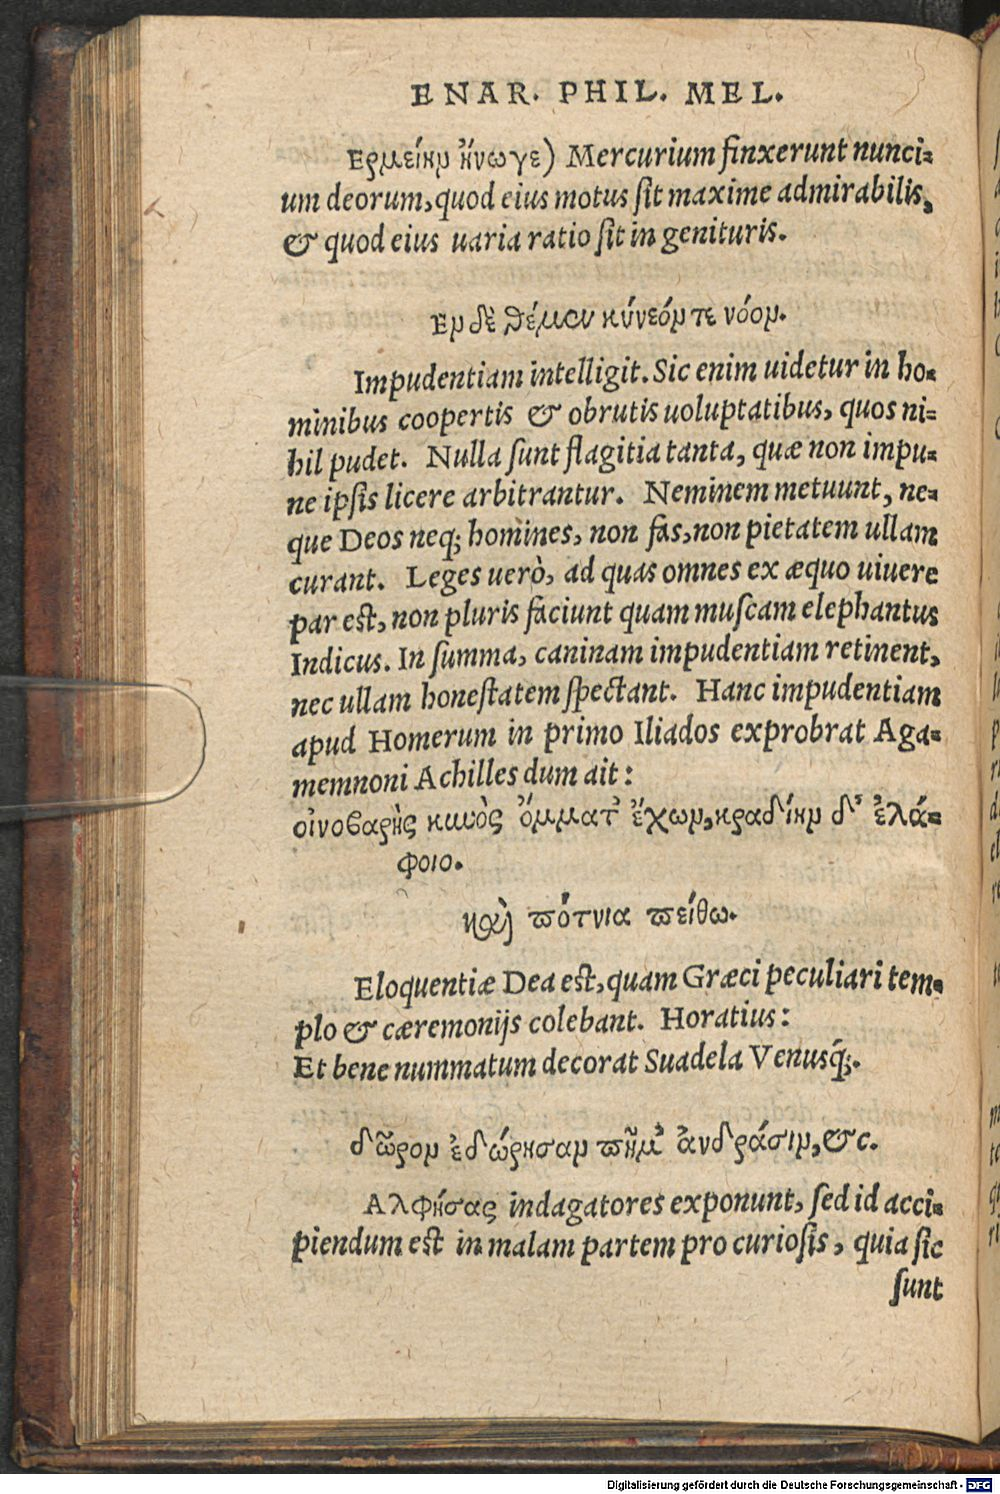 ENAR. PHIL. MEL.
Ερμείην ἤνωγε) Mercurium finxerunt nunci-
um deorum, quod eius motus sit maxime admirabilis,
& quod eius uaria ratio sit in genituris.
Εν δὲ θέμεν κύνεόν τε νόον.
Impudentiam intelligit. Sic enim uidetur in ho-
minibus coopertis & obrutis uoluptatibus, quos ni-
hil pudet. Nulla sunt flagitia tanta, quæ non impu-
ne ipsis licere arbitrantur. Neminem metuunt, ne-
que Deos neq; homines, non fas, non pietatem ullam
curant. Leges uerò, ad quas omnes ex æquo uiuere
par est, non pluris faciunt quam muscam elephantus
Indicus. In summa, caninam impudentiam retinent,
nec ullam honestatem spectant. Hanc impudentiam
apud Homerum in primo Iliados exprobrat Aga-
memnoni Achilles dum ait:
οἰνοβαρὴς κυνὸς ὄμματ' ἔχων, κραδίην δ' ἐλά-
φοιο.
καὶ πότνια πείθω.
Eloquentiæ Dea est, quam Græci peculiari tem-
plo & cæremonijs colebant. Horatius:
Et bene nummatum decorat Suadela Venusq́;.
δῶρον ἐδώρησαν πῆμ' ἀνδράσιν, &c.
Αλφήσας indagatores exponunt, sed id acci-
piendum est in malam partem pro curiosis, quia sic
sunt
Digitalisierung gefördert durch die Deutsche Forschungsgemeinschaft - DFG